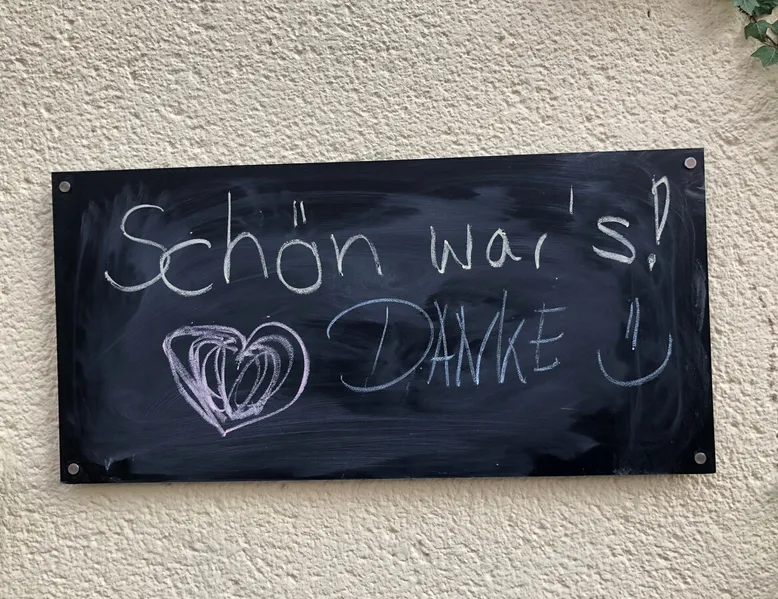 Schön war's!
DANKE